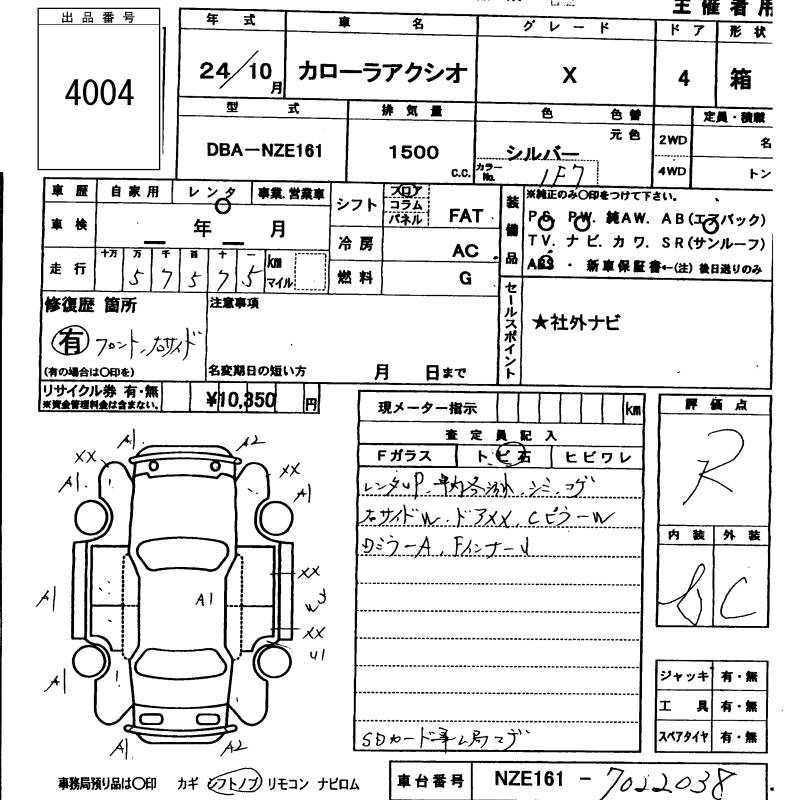 主催者用
出品番号
4004
年式 車名 グレード ドア 形状
24/10月 カローラアクシオ X 4 箱
型式 排気量 色 色替 定員・積載
DBA-NZE161 1500 c.c. シルバー 元色 2WD 名
カラーNo. 1F7 4WD トン
車歴 自家用 レンタ 事業、営業車
シフト フロア コラム パネル FAT
車検 年 月
冷房 AC
走行 十万 万 千 百 十 一 km マイル
5 7 5 7 5
燃料 G
装備品 ※純正のみ○印をつけて下さい。
PS. PW. 純AW. AB(エアバック)
TV. ナビ. カワ. SR(サンルーフ)
ABS ・ 新車保証書←(注) 後日送りのみ
修復歴 箇所
有 フロント、右サイド
(有の場合は○印を)
注意事項
名変期日の短い方 月 日まで
セールスポイント
★社外ナビ
リサイクル券 有・無 ¥10,350 円
※資金管理料金は含まない。
現メーター指示 km
査定員記入
Fガラス トビ石 ヒビワレ
レンタUP
右サイドW、ドアXX、CピラーW
DミラーA、Fインナー
SDカード
評価点
R
内装 外装
C
A1 A2
XX XX
A1 A1
XX
A1 A1
XX
U1
A1
A1 A2
ジャッキ 有・無
工具 有・無
スペアタイヤ 有・無
事務局預り品は○印 カギ シフトノブ リモコン ナビロム
車台番号 NZE161 - 7022038